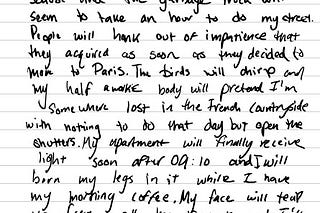 seem to take an hour to do my street.
People will honk out of impatience that
they acquired as soon as they decided to
move to Paris. The birds will chirp and
my half awake body will pretend I'm
Somewhere lost in the French countryside
with nothing to do that day but open the
shutters. My apartment will finally receive
light soon after 09:10 and I will
born my legs in it while I have
my morning coffee. My face will tear